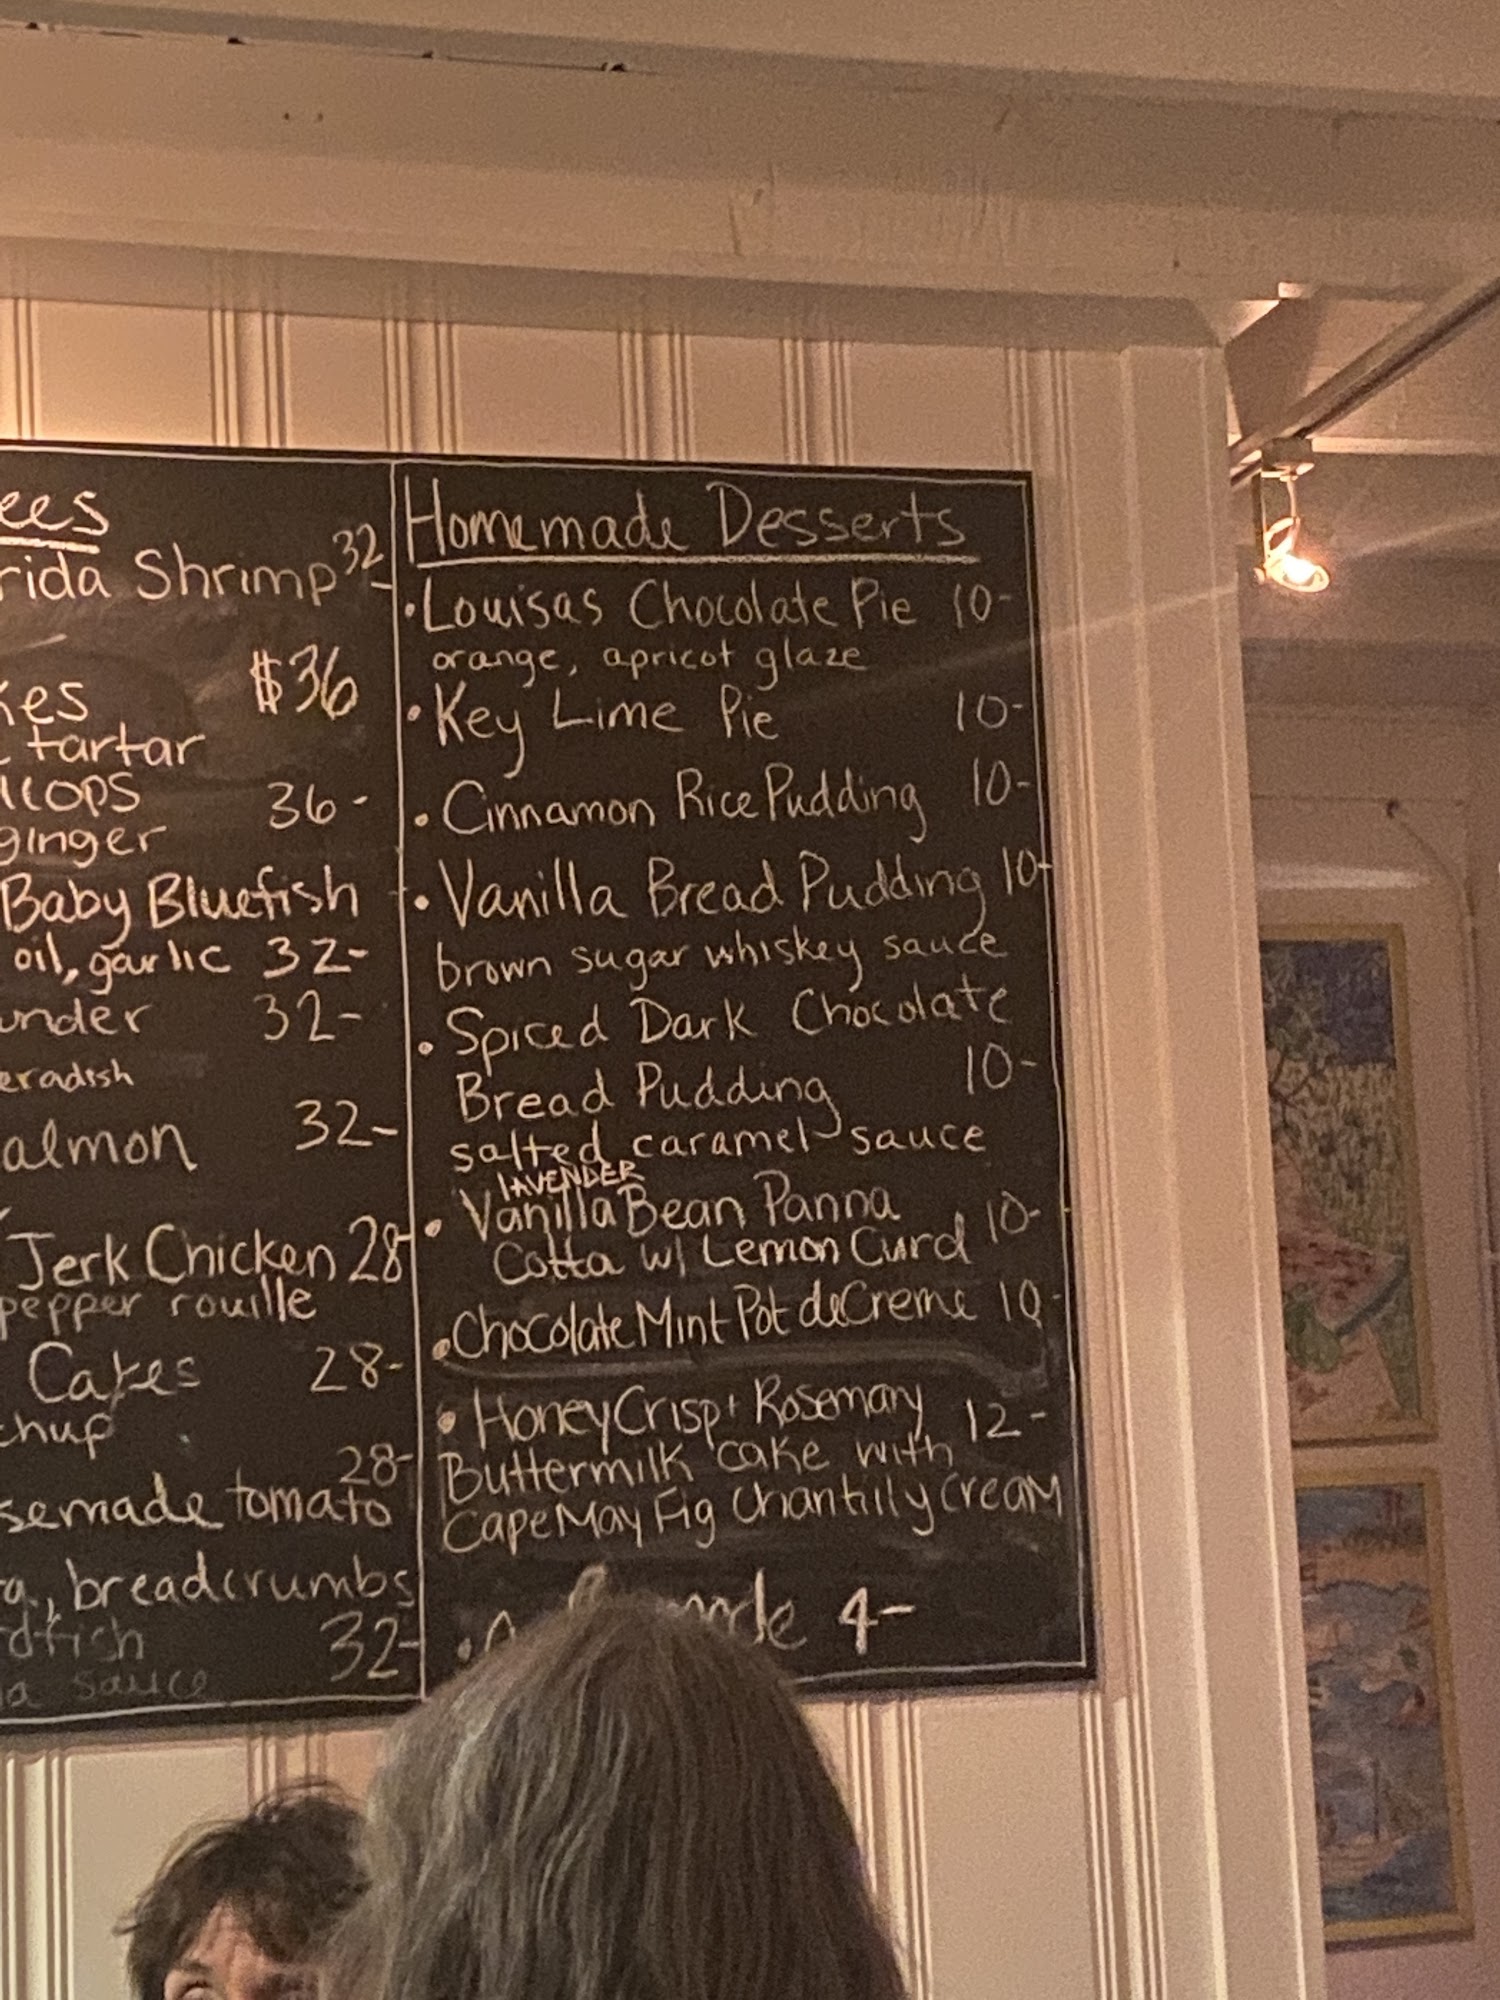 ees
rida Shrimp 32-
$36
kes
tartar
llops
ginger 36-
Baby Bluefish
oil, garlic 32-
under 32-
eradish
almon 32-
Jerk Chicken 28-
pepper rouille
Cakes 28-
chup
28-
semade tomato
a, breadcrumbs
dfish 32-
a sauce
Homemade Desserts
• Louisas Chocolate Pie 10-
orange, apricot glaze
• Key Lime Pie 10-
• Cinnamon Rice Pudding 10-
• Vanilla Bread Pudding 10-
brown sugar whiskey sauce
• Spiced Dark Chocolate
Bread Pudding 10-
salted caramel sauce
LAVENDER
• Vanilla Bean Panna
Cotta w/ Lemon Curd 10-
• Chocolate Mint Pot de Creme 10-
• Honey Crisp + Rosemary 12-
Buttermilk cake with
Cape May Fig Chantilly Cream
made 4-